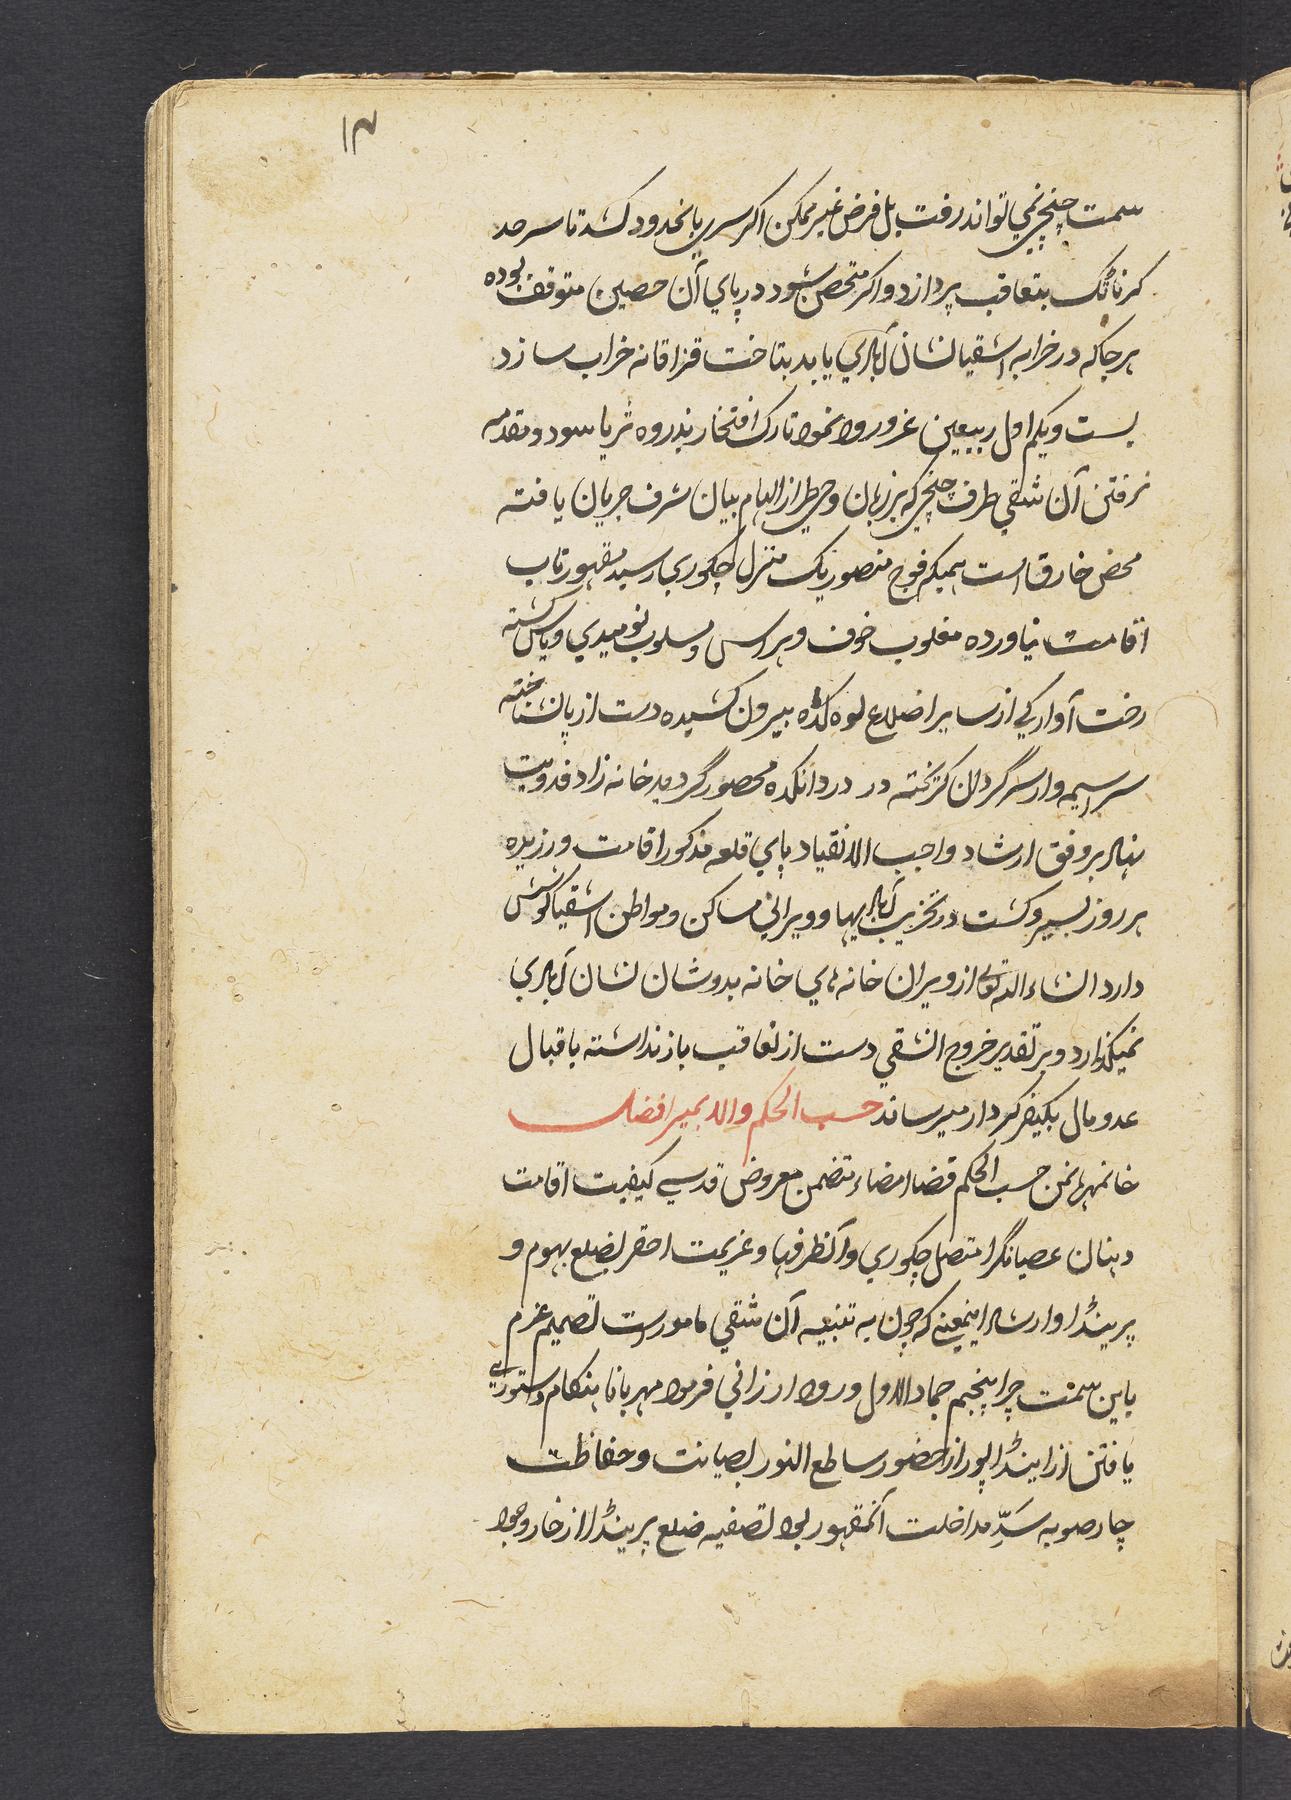 ۱۴
سمت چنچی نمی تواند رفت بل فرض غیر ممکن اکر سری بانحدود کشد تا سرحد
کرناتک بتعاقب پردازد و اکر متحصن شود در پای آن حصین متوقف بوده
هر جا که در خرابه اشقیا نشان آبادی یابد بتاخت قزاقانه خراب سازد
بست ویکم اول ربیعین غرور ورود نموده تارک افتخار بذروه ثریا سود و مقدمه
نرفتن آن شقی طرف چنچی که بر زبان وحی طراز الهام بیان شرف جریان یافته
محض خارق است همیکه فوج منصور یک منزل چکوری رسید مقهور تاب
اقامت نیاورده مغلوب خوف و هراس و مسلوب نومیدی و یاس کشته
رخت آوارکی از سایر اضلاع لوه کده بیرون کشیده دست از پا نشناخته
سراسیمه وار سرگردان کریخته در دردانکده محصور گردید خانه زاد فدویت
نهاد بر وفق ارشاد واجب الانقیاد پای قلعه مذکور اقامت ورزیده
هر روز بسیر و کشت در تخریب آبادیها و ویرانی مساکن و مواطن اشقیا کوشش
دارد انشاء الله تعالی از ویران خانه های خانه بدوشان نشان آبادی
نمیکذارد و بر تقدیر خروج الشقی دست از تعاقب باز نداشته باقبال
عدو مال بکیفر کردار میرساند حسب الحکم والا بمیر افضل
خانمهربانمن حسب الحکم قضا امضاء متضمن معروض قدسی کیفیت اقامت
دهنان عصیانگرا متصل چکوری و آنطرفها و عزیمت احقر بضلع بهوم و
پرینڈا و ارشاد اینمعنی که چون به تنبیه آن شقی مامورست تصمیم عزم
باین سمت چرا پنجم جماد الاول ورود ارزانی فرمود مهربانا هنکام دستوری
یافتن از اینڈاپور از حضور ساطع النور بصیانت و حفاظت
چار صوبه سَدِّ مداخلت آنمقهور بود تصفیه ضلع پرینڈا از خار وجود